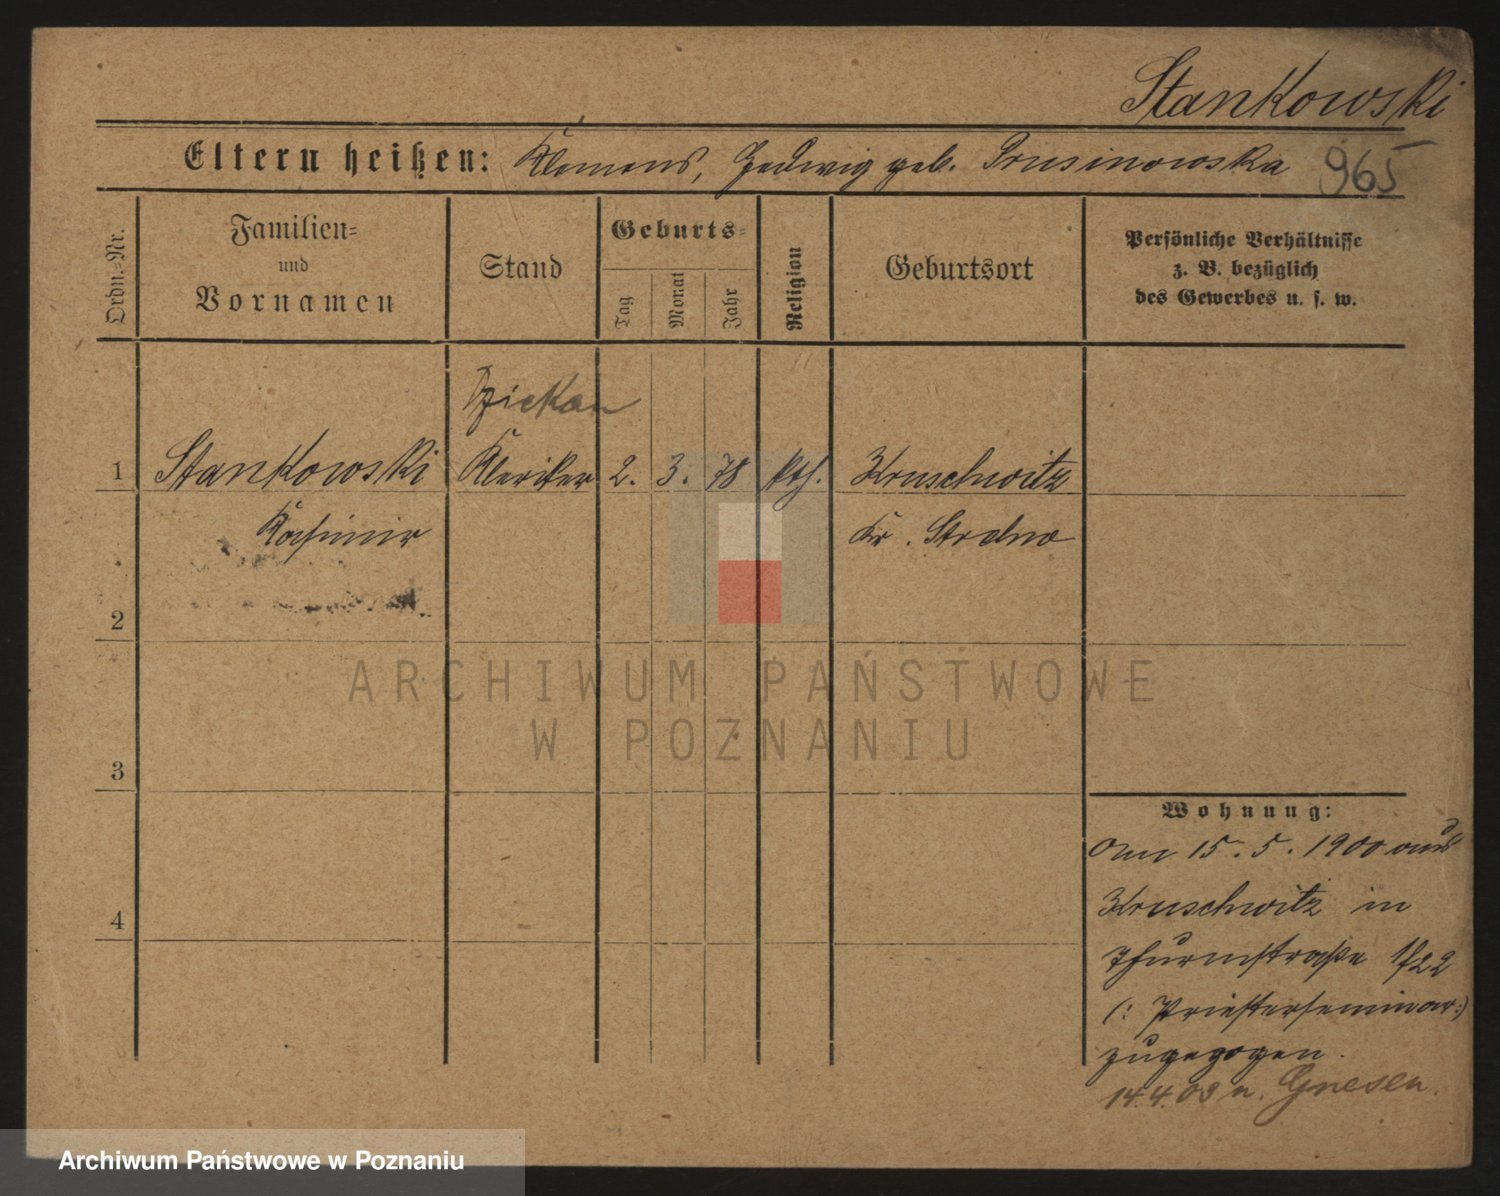 Stankowski
Eltern heißen: Klemens, Hedwig geb. Prusinowska 965
Ordn.-Nr.
Familien-
und
Vornamen
Stand
Geburts-
Tag
Monat
Jahr
Religion
Geburtsort
Persönliche Verhältnisse
z. B. bezüglich
des Gewerbes u. s. w.
1 Stankowski Kleriker 2. 3. 78 kth. Kruschwitz
Kasimir Kr. Strelno
2
3
4
Wohnung:
Am 15. 5. 1900 aus
Kruschwitz in
Thurmstraße 1/22
(: Priesterseminar :)
zugezogen.
14.4.03 n. Gnesen.
ARCHIWUM PAŃSTWOWE
W POZNANIU
Archiwum Państwowe w Poznaniu